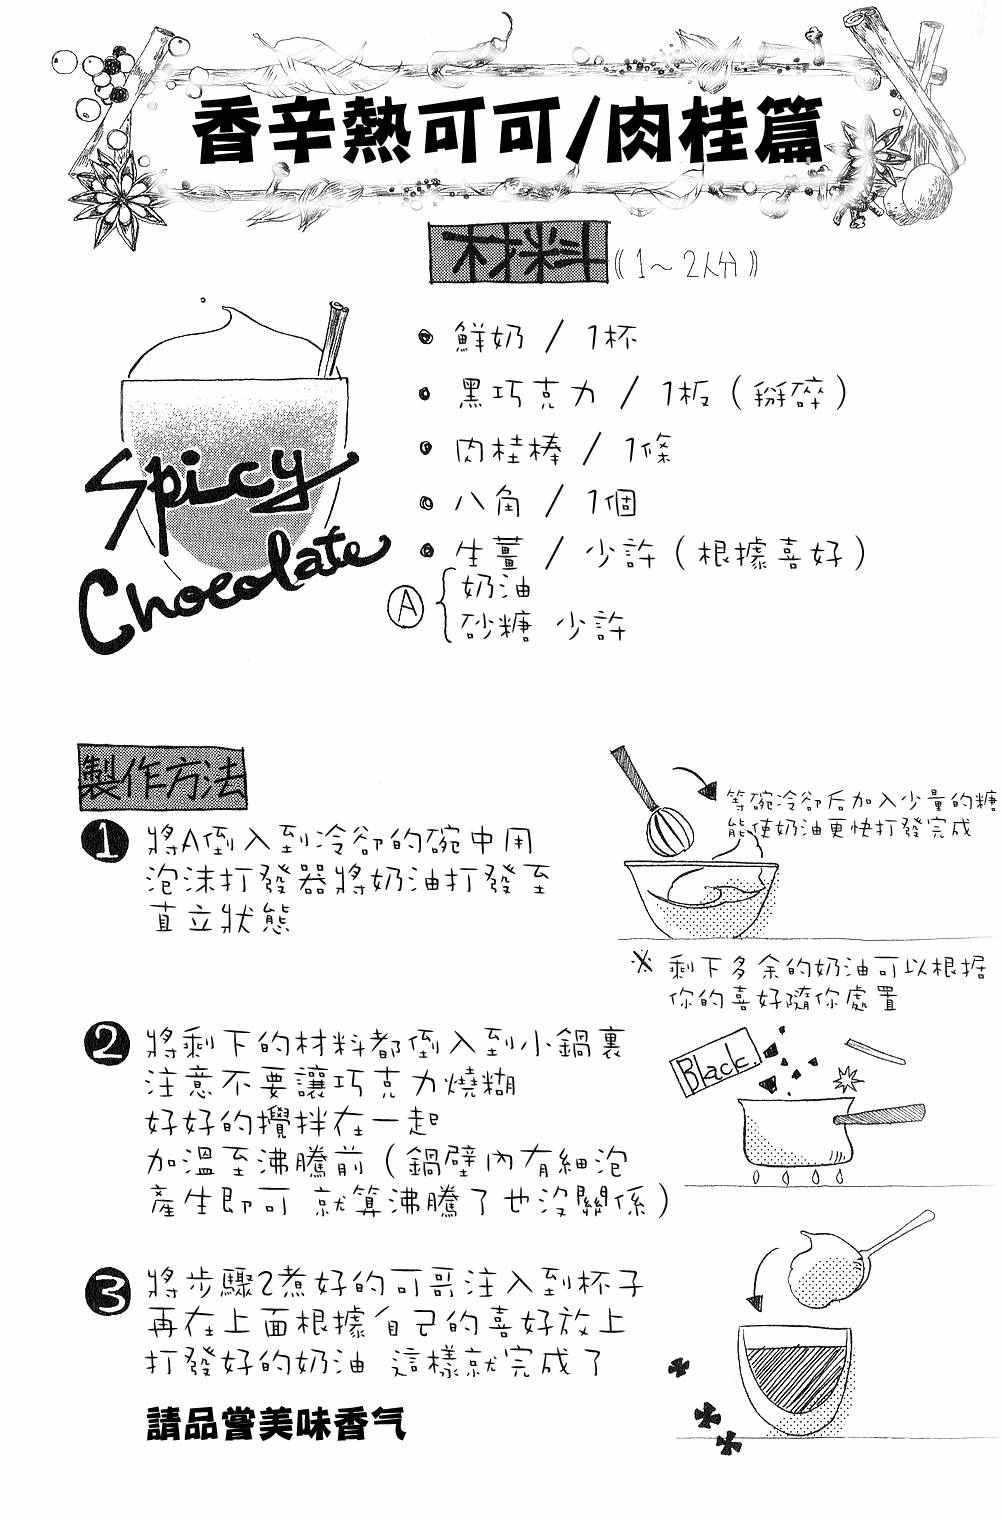 香辛熱可可/肉桂篇
材料《1～2人分》
鮮奶 / 1杯
黑巧克力 / 1板（掰碎）
肉桂棒 / 1條
八角 / 1個
生薑 / 少許（根據喜好）
A 奶油
砂糖 少許
Spicy
Chocolate
製作方法
1 將A倒入到冷卻的碗中用
泡沫打發器將奶油打發至
直立狀態
等碗冷卻后加入少量的糖
能使奶油更快打發完成
※ 剩下多余的奶油可以根据
你的喜好隨你處置
2 將剩下的材料都倒入到小鍋裏
注意不要讓巧克力燒糊
好好的攪拌在一起
加溫至沸騰前（鍋壁內有細泡
產生即可 就算沸騰了也沒關係）
Black.
3 將步驟2煮好的可哥注入到杯子
再在上面根據自己的喜好放上
打發好的奶油 這樣就完成了
請品嘗美味香气